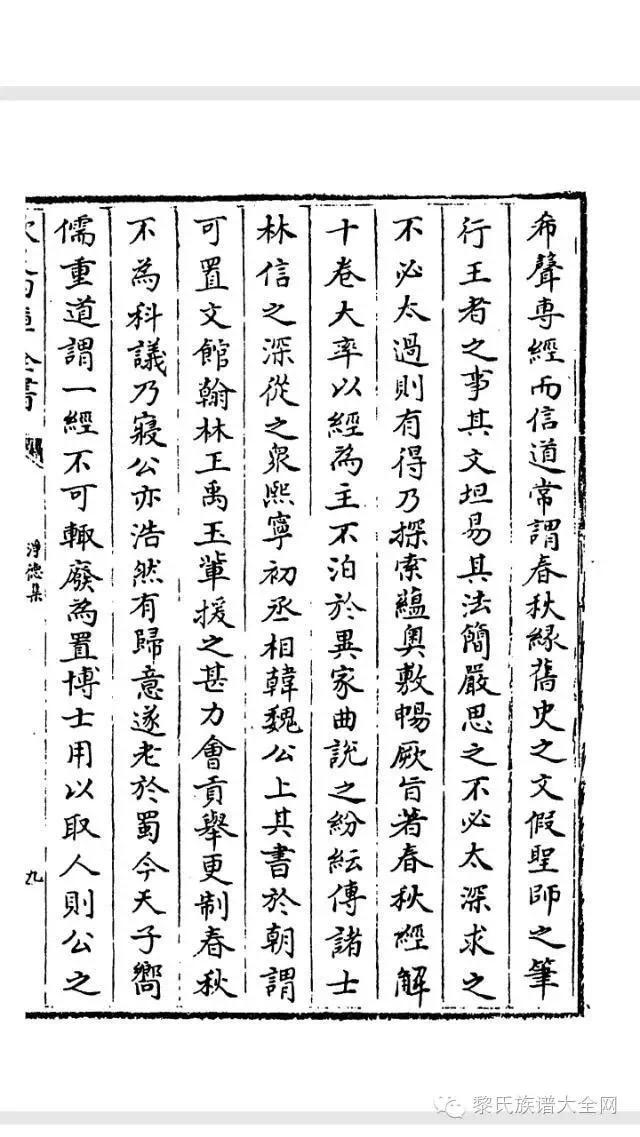 希聲專經而信道常謂春秋緣舊史之文假聖師之筆
行王者之事其文坦易其法簡嚴思之不必太深求之
不必太過則有得乃探索蘊奧敷暢厥旨著春秋經解
十卷大率以經為主不泊於異家曲說之紛紜傳諸士
林信之深從之衆熙寧初丞相韓魏公上其書於朝謂
可置文館翰林王禹玉輩援之甚力會貢舉更制春秋
不為科議乃寢公亦浩然有歸意遂老於蜀今天子嚮
儒重道謂一經不可輙廢為置博士用以取人則公之
全書
淨德集
九
黎氏族谱大全网